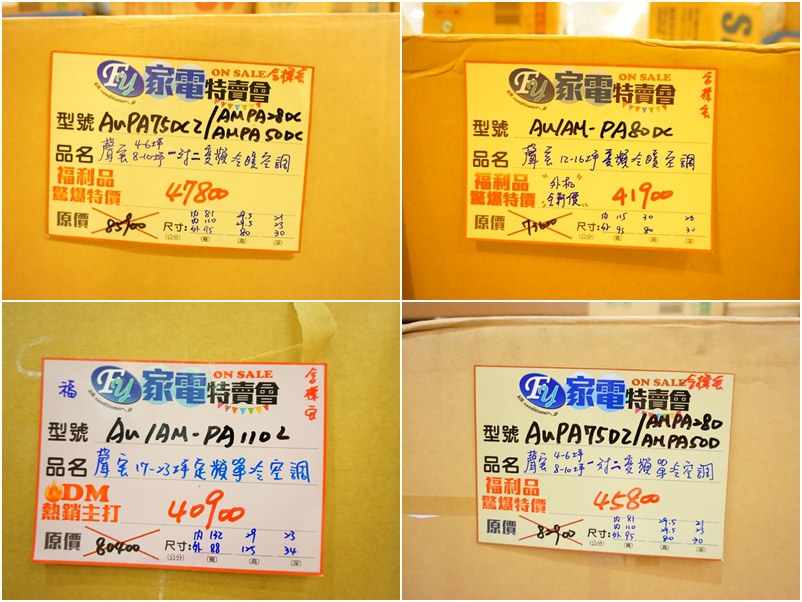 FU 家電特賣會
air conditioner
ON SALE
含標安
型號 AuPA75DC2/AMPA28DC
AMPA50DC
品名 聲寶 4-6坪
8-10坪 一對二變頻冷暖空調
福利品
驚爆特價 47800
原價 85900
尺寸: 內 81 29.5 21
內 110 29.5 23
外 95 80 30
(公分) (寬) (高) (深)
FU 家電特賣會
air conditioner
ON SALE
含標安
型號 AU/AM-PA80DC
品名 聲寶 12-16坪 變頻冷暖空調
福利品
驚爆特價 "外机全新價" 41900
原價 73600
尺寸: 內 115 30 26
外 95 80 30
(公分) (寬) (高) (深)
福
FU 家電特賣會
air conditioner
ON SALE
含標安
型號 AU/AM-PA110L
品名 聲寶 17-23坪 定頻單冷空調
DM
熱銷主打 40900
原價 80400
尺寸: 內 132 29 23
外 88 125 34
(公分) (寬) (高) (深)
FU 家電特賣會
air conditioner
ON SALE
含標安
型號 AuPA75D2/AMPA28D
AMPA50D
品名 聲寶 4-6坪
8-10坪 一對二變頻單冷空調
福利品
驚爆特價 45800
原價 82900
尺寸: 內 81 29.5 21
內 110 29.5 23
外 95 80 30
(公分) (寬) (高) (深)